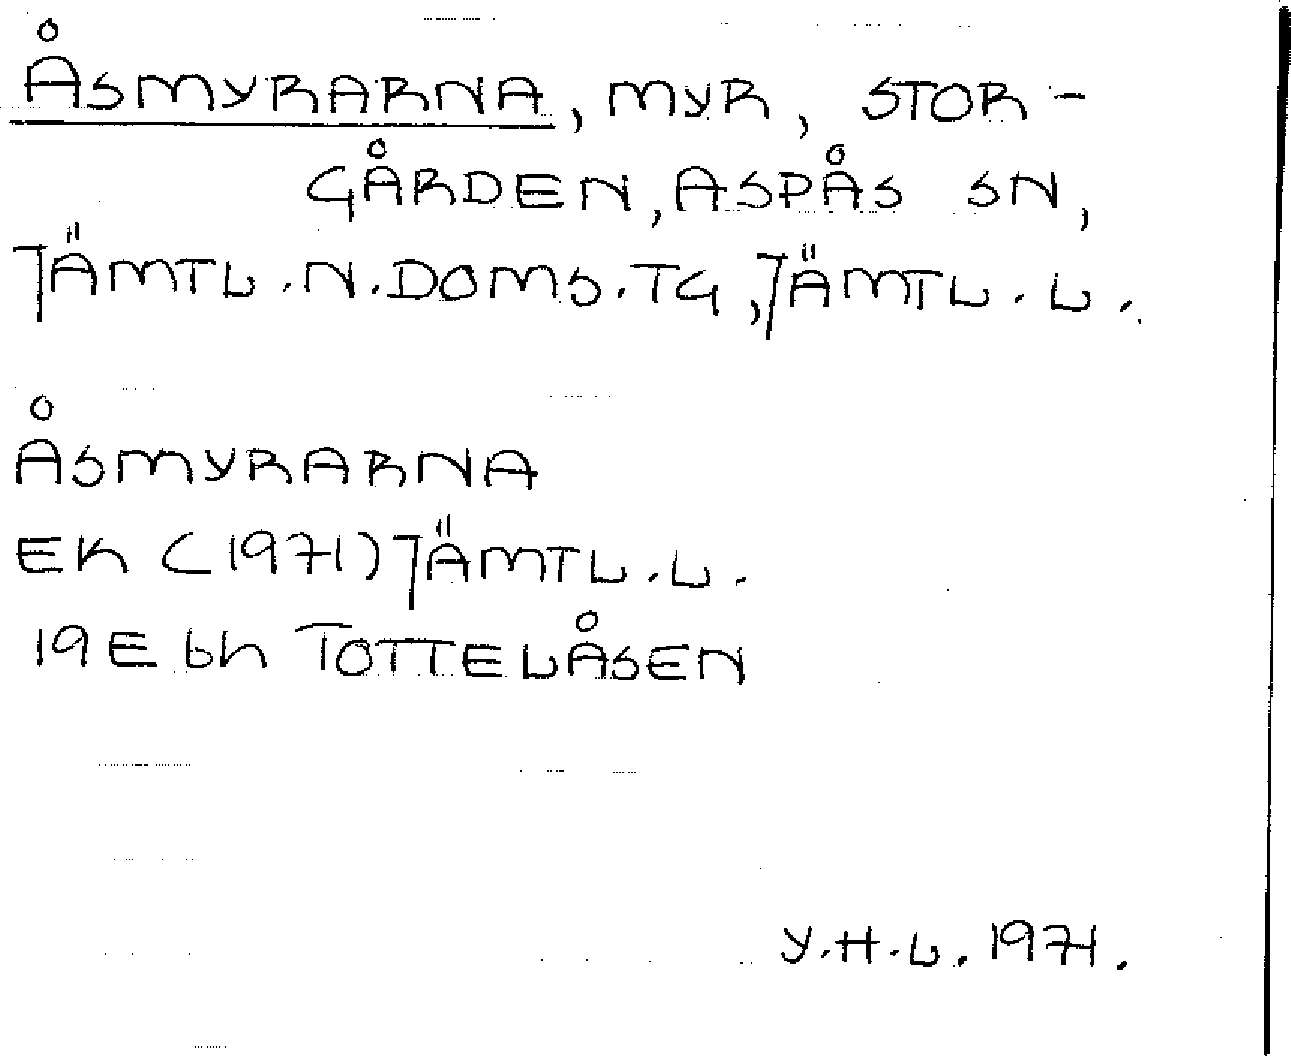 ÅSMYRARNA, MYR, STOR-
GÅRDEN, ASPÅS SN,
JÄMTL. N. DOMS. TG, JÄMTL. L.
ÅSMYRARNA
EK (1971) JÄMTL. L.
19E 6h TOTTELÅSEN
Y.H.L. 1971.